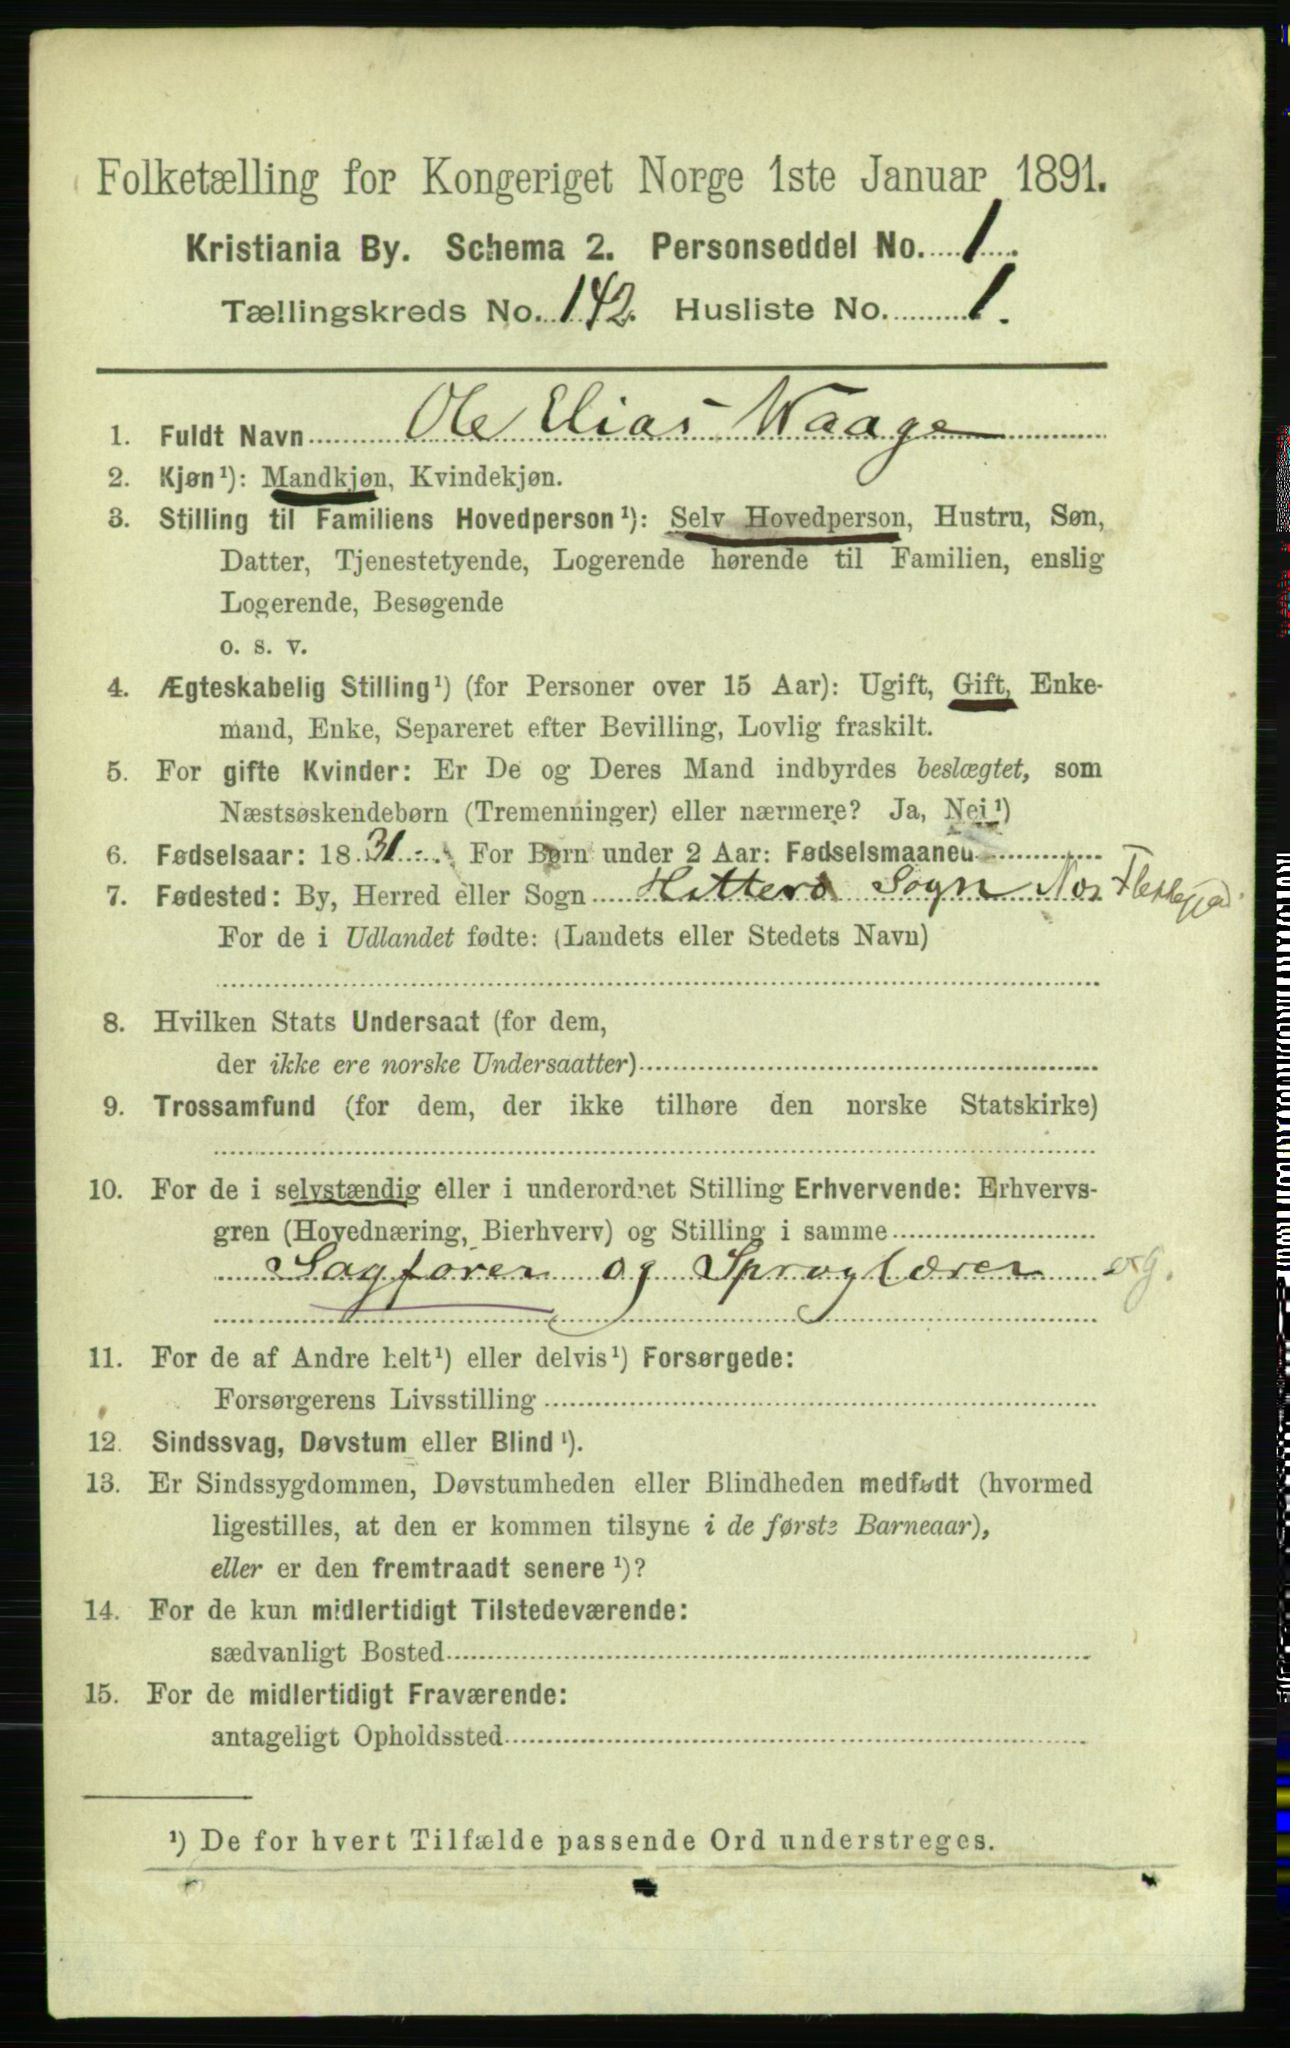 Folketælling for Kongeriget Norge 1ste Januar 1891.
Kristiania By. Schema 2. Personseddel No. 1.
Tællingskreds No. 142. Husliste No. 1.
1. Fuldt Navn Ole Elias Waage
2. Kjøn¹): Mandkjøn, Kvindekjøn.
3. Stilling til Familiens Hovedperson¹): Selv Hovedperson, Hustru, Søn,
Datter, Tjenestetyende, Logerende hørende til Familien, enslig
Logerende, Besøgende
o. s. v.
4. Ægteskabelig Stilling¹) (for Personer over 15 Aar): Ugift, Gift, Enke-
mand, Enke, Separeret efter Bevilling, Lovlig fraskilt.
5. For gifte Kvinder: Er De og Deres Mand indbyrdes beslægtet, som
Næstsøskendebørn (Tremenninger) eller nærmere? Ja, Nei¹)
6. Fødselsaar: 1831. For Børn under 2 Aar: Fødselsmaaned
7. Fødested: By, Herred eller Sogn Hitterø Sogn Nær Flekkefjord
For de i Udlandet fødte: (Landets eller Stedets Navn)
8. Hvilken Stats Undersaat (for dem,
der ikke ere norske Undersaatter)
9. Trossamfund (for dem, der ikke tilhøre den norske Statskirke)
10. For de i selvstændig eller i underordnet Stilling Erhvervende: Erhvervs-
gren (Hovednæring, Bierhverv) og Stilling i samme
Sagfører og Sproglærer
11. For de af Andre helt¹) eller delvis¹) Forsørgede:
Forsørgerens Livsstilling
12. Sindssvag, Døvstum eller Blind¹).
13. Er Sindssygdommen, Døvstumheden eller Blindheden medfødt (hvormed
ligestilles, at den er kommen tilsyne i de første Barneaar),
eller er den fremtraadt senere¹)?
14. For de kun midlertidigt Tilstedeværende:
sædvanligt Bosted
15. For de midlertidigt Fraværende:
antageligt Opholdssted
¹) De for hvert Tilfælde passende Ord understreges.